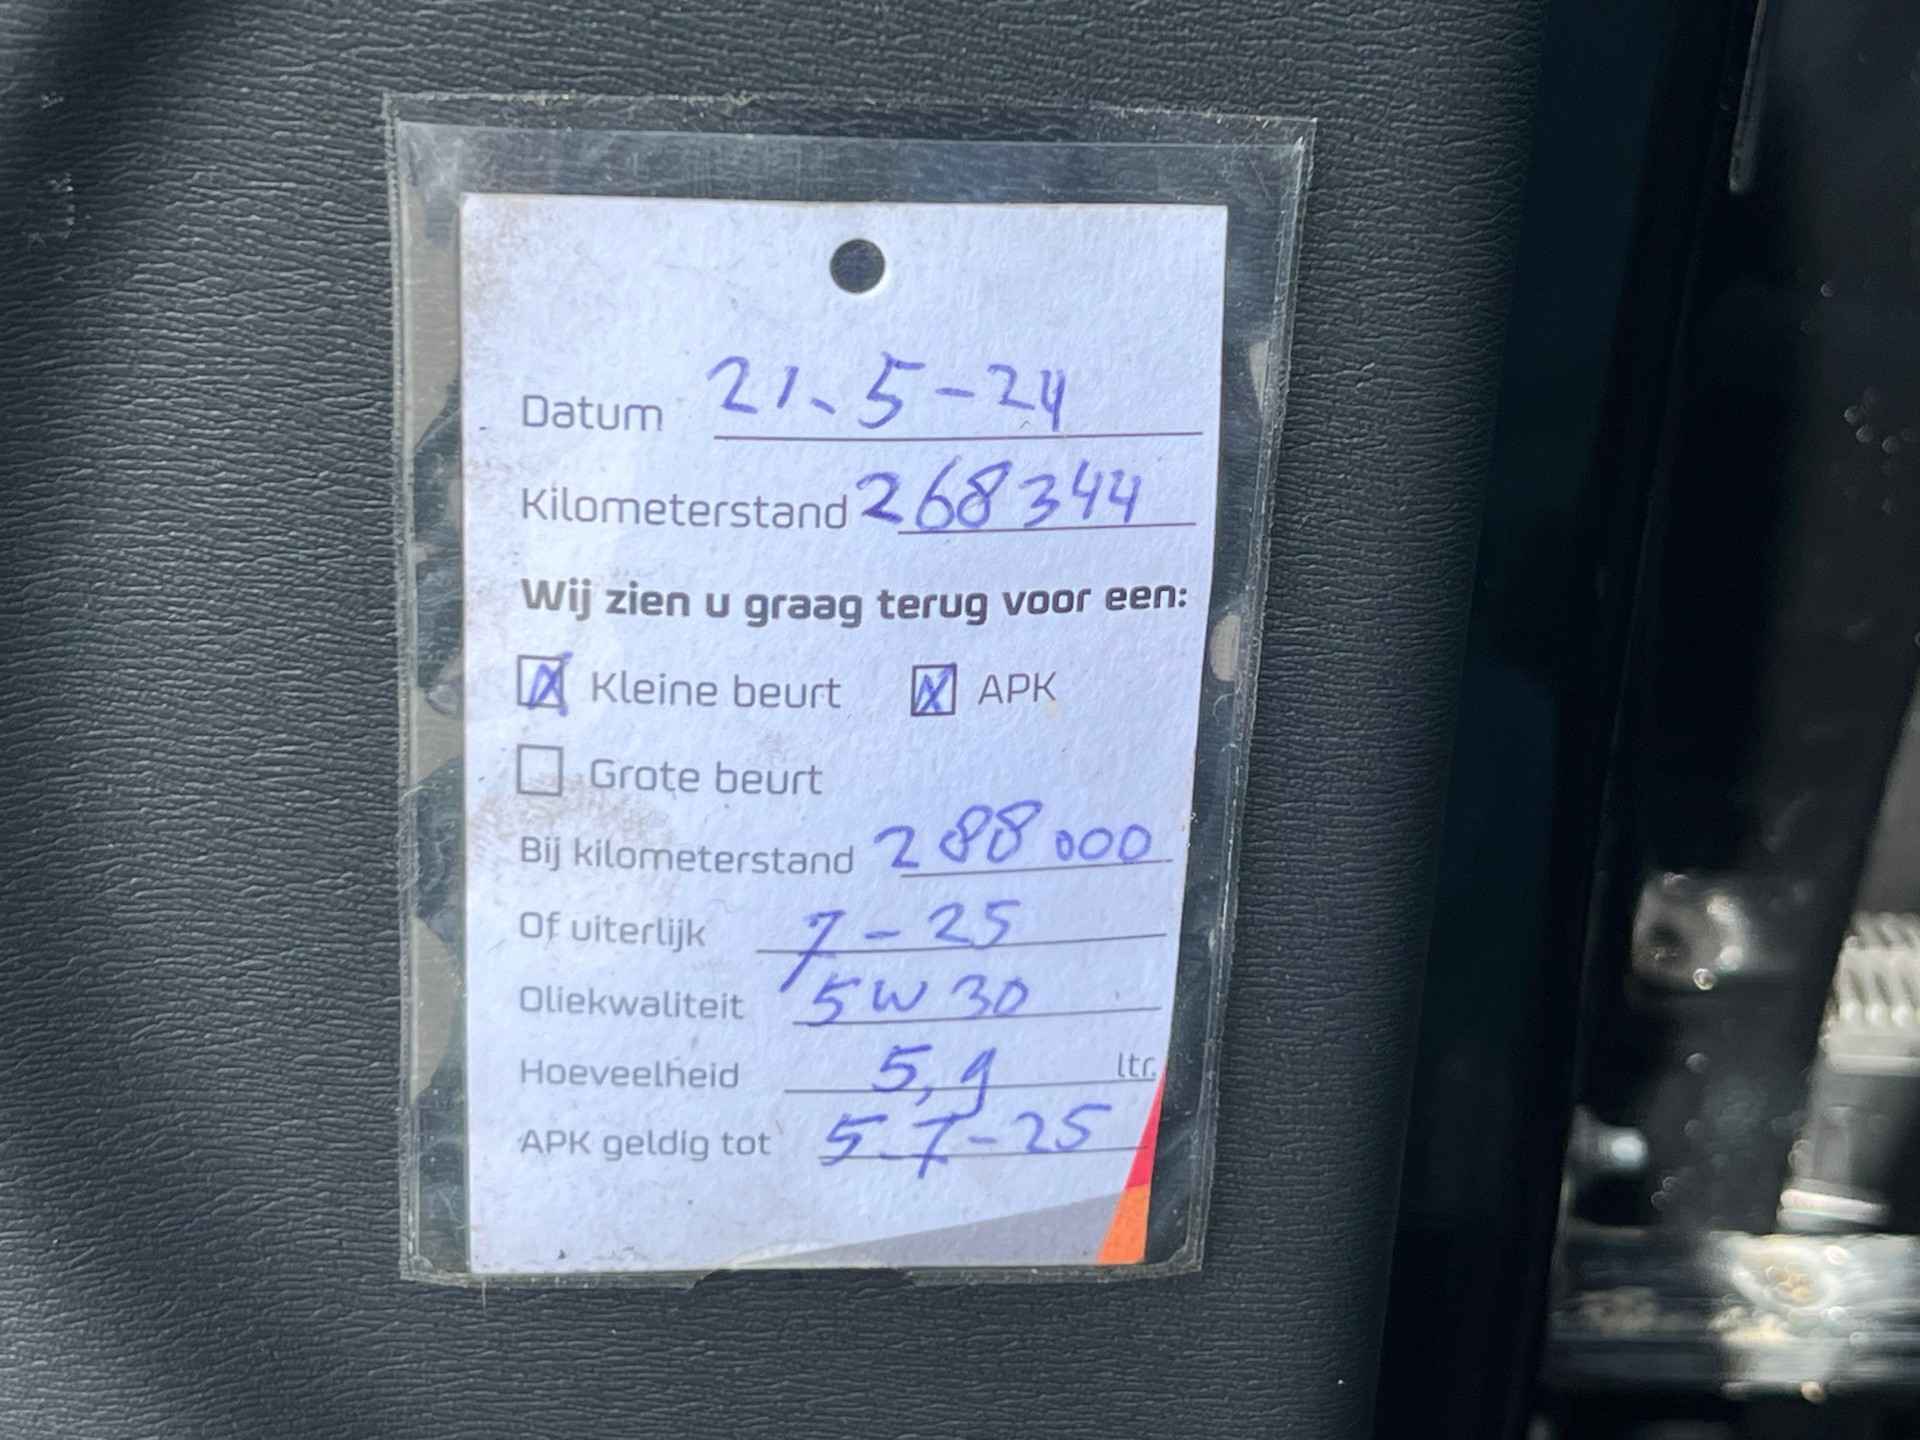 Datum 21-5-24
Kilometerstand 268344
Wij zien u graag terug voor een:
Kleine beurt APK
Grote beurt
Bij kilometerstand 288000
Of uiterlijk 7-25
Oliekwaliteit 5W30
Hoeveelheid 5,9 ltr.
APK geldig tot 5-7-25